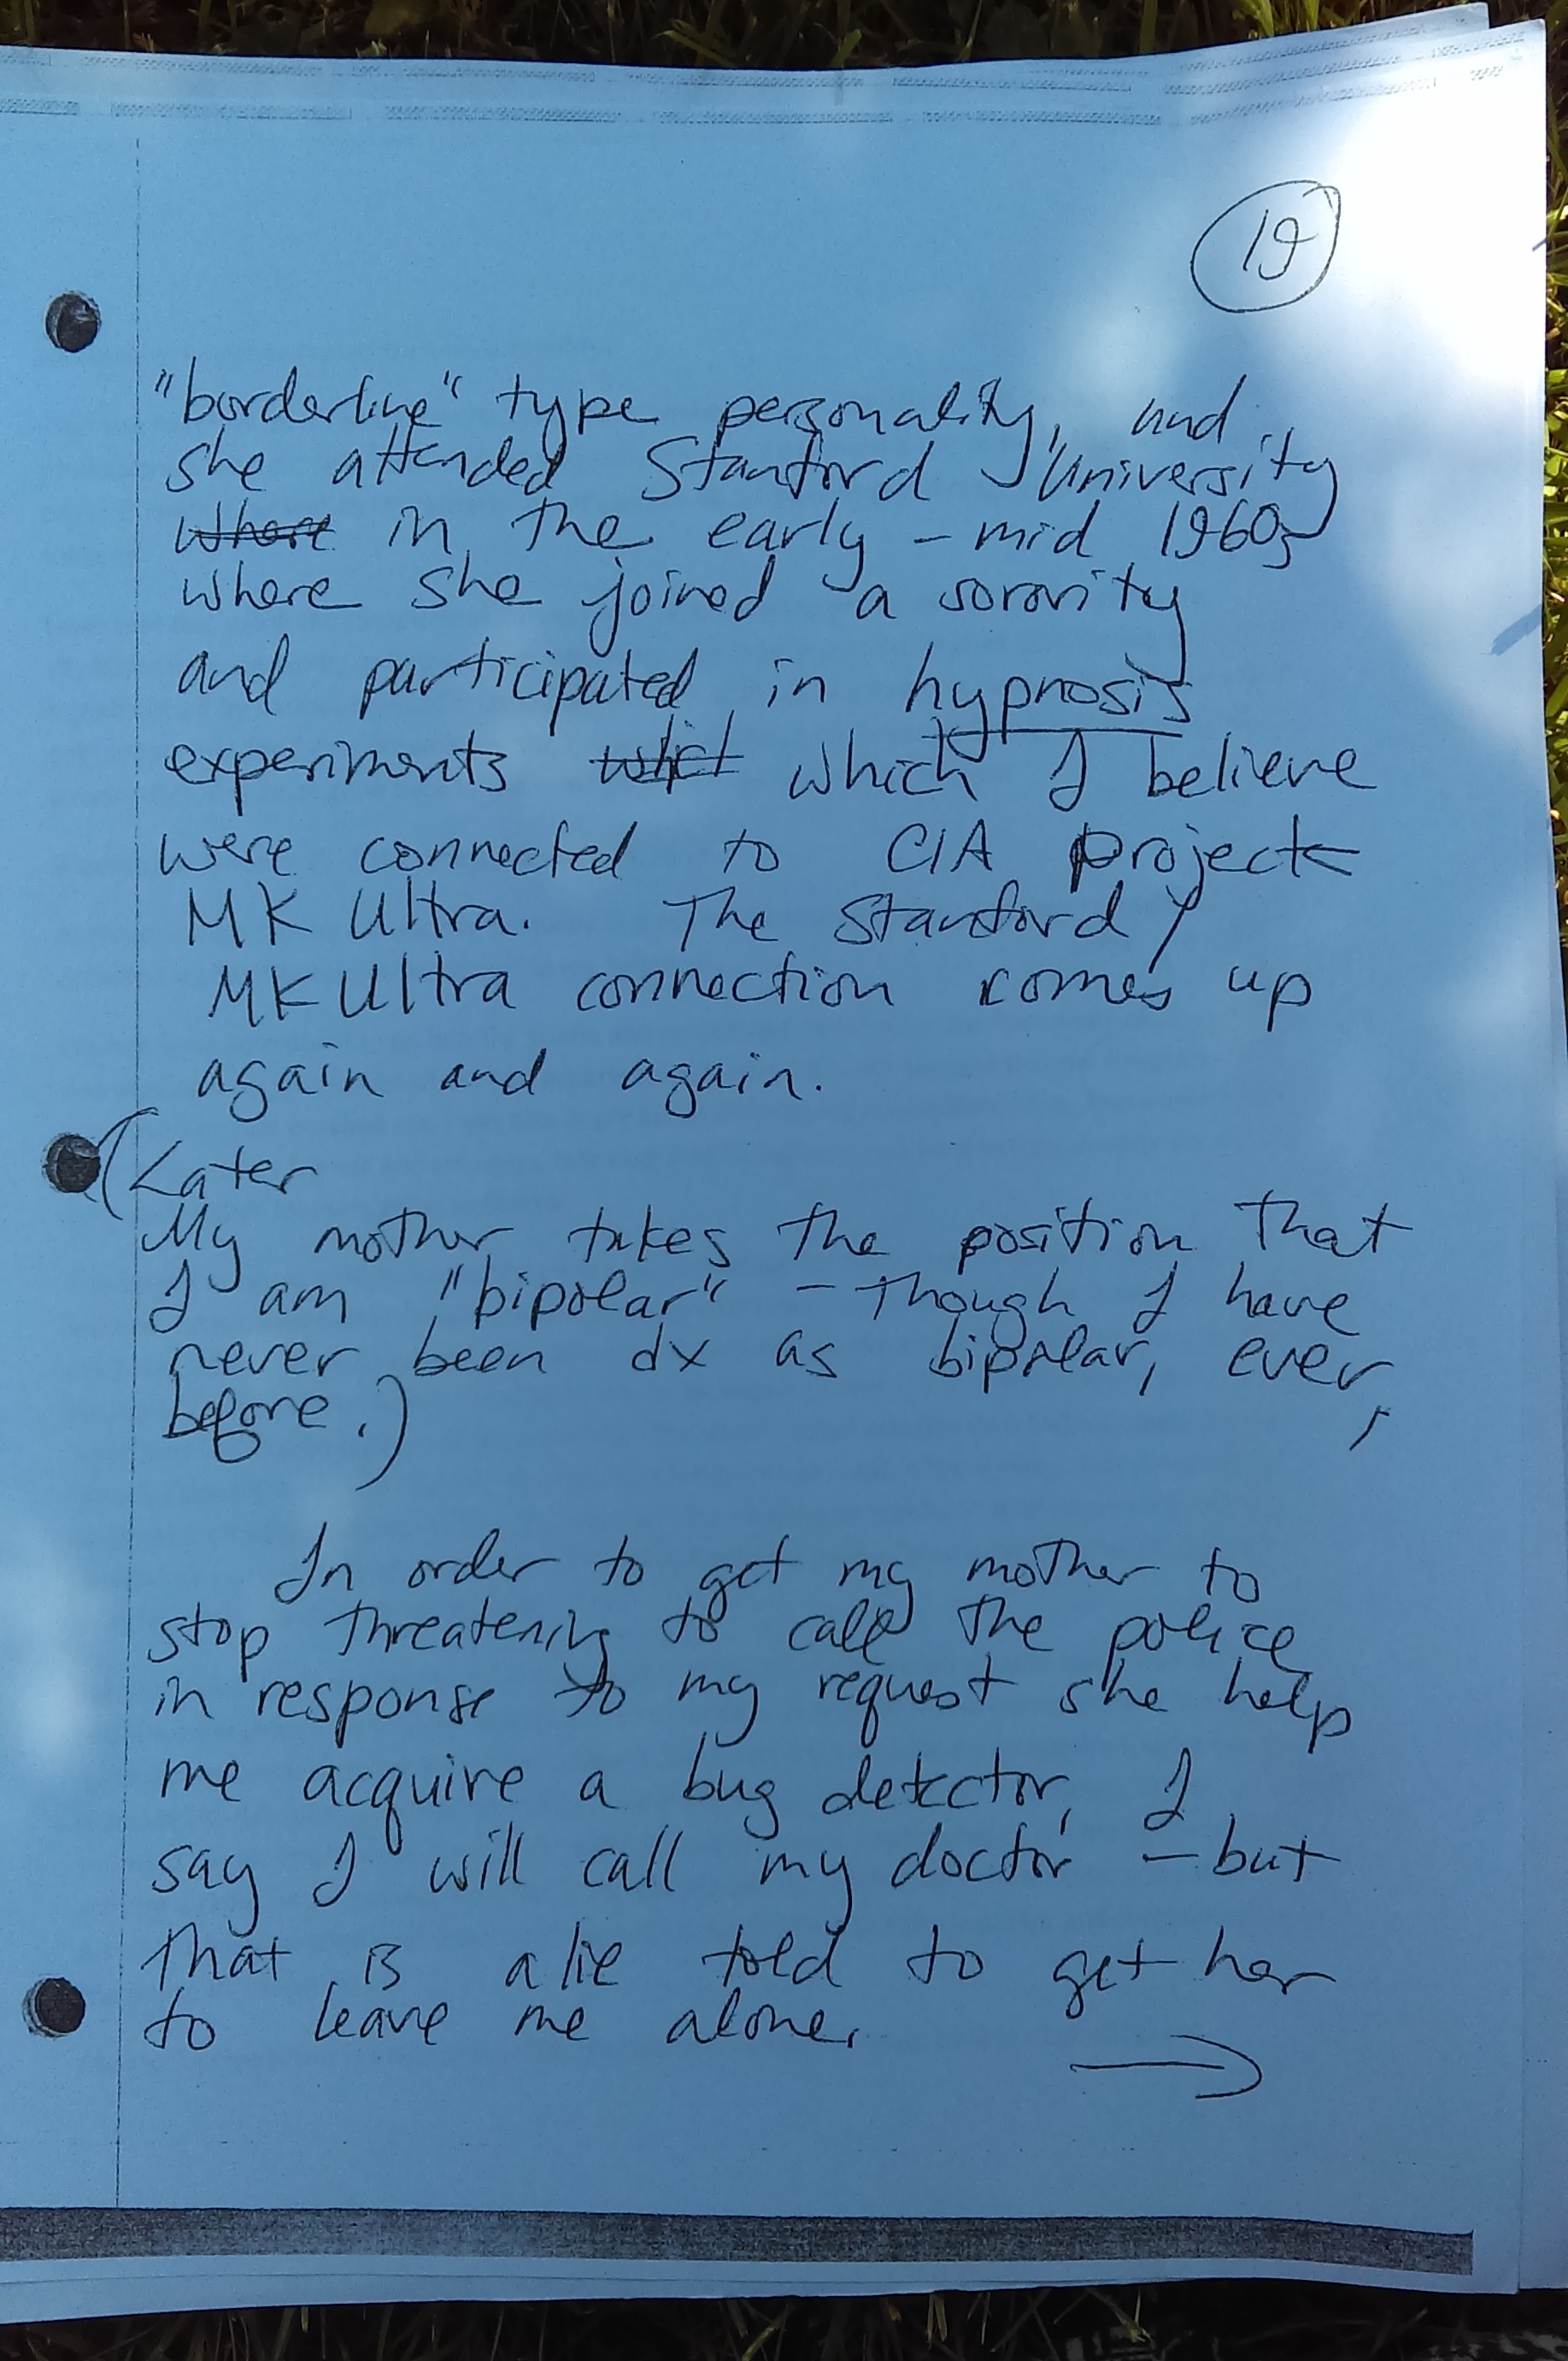 19
"borderline" type personality, and
she attended Stanford University
where in the early - mid 1960s
where she joined a sorority
and participated in hypnosis
experiments which which I believe
were connected to CIA project
MK Ultra. The Stanford /
MK Ultra connection comes up
again and again.
(Later
My mother takes the position that
I am "bipolar" - though I have
never been dx as bipolar, ever,
before.)
In order to get my mother to
stop threatening to call the police
in response to my request she help
me acquire a bug detector, I
say I will call my doctor - but
that is a lie told to get her
to leave me alone.